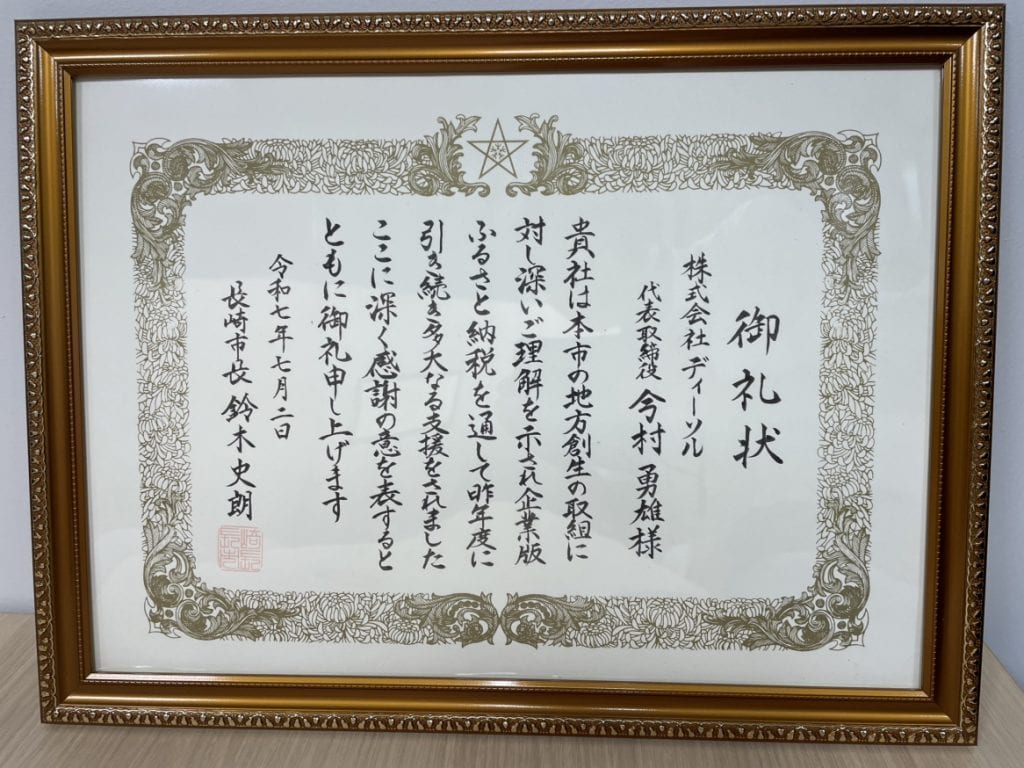 御礼状
株式会社 ディーソル
代表取締役 今村 勇雄 様
貴社は本市の地方創生の取組に
対し深いご理解を示され企業版
ふるさと納税を通して昨年度に
引き続き多大なる支援をされました
ここに深く感謝の意を表すると
ともに御礼申し上げます
令和七年七月二日
長崎市長 鈴木史朗